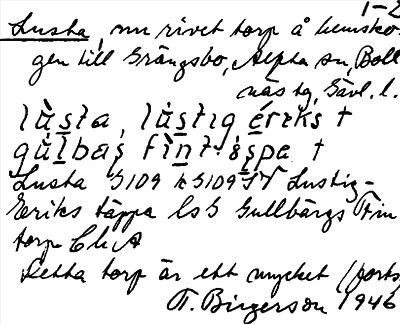 1-2
Lusta, nu rivet torp å hemsko-
gen till Grängsbo, Alfta sn, Boll
näs tg, Gävl. l.
lùsta, lùstig ériks †
gùlbas fìnt
Lusta G109 k G109 Lustig-
Eriks täppa ls G Gullbärgs Fin
torp Ch A
Detta torp är ett mycket (forts
T. Birgerson 1946